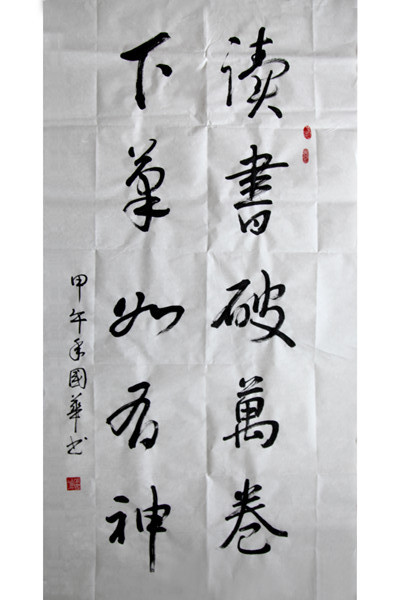 读書破萬卷
下筆如有神
甲午季國華书